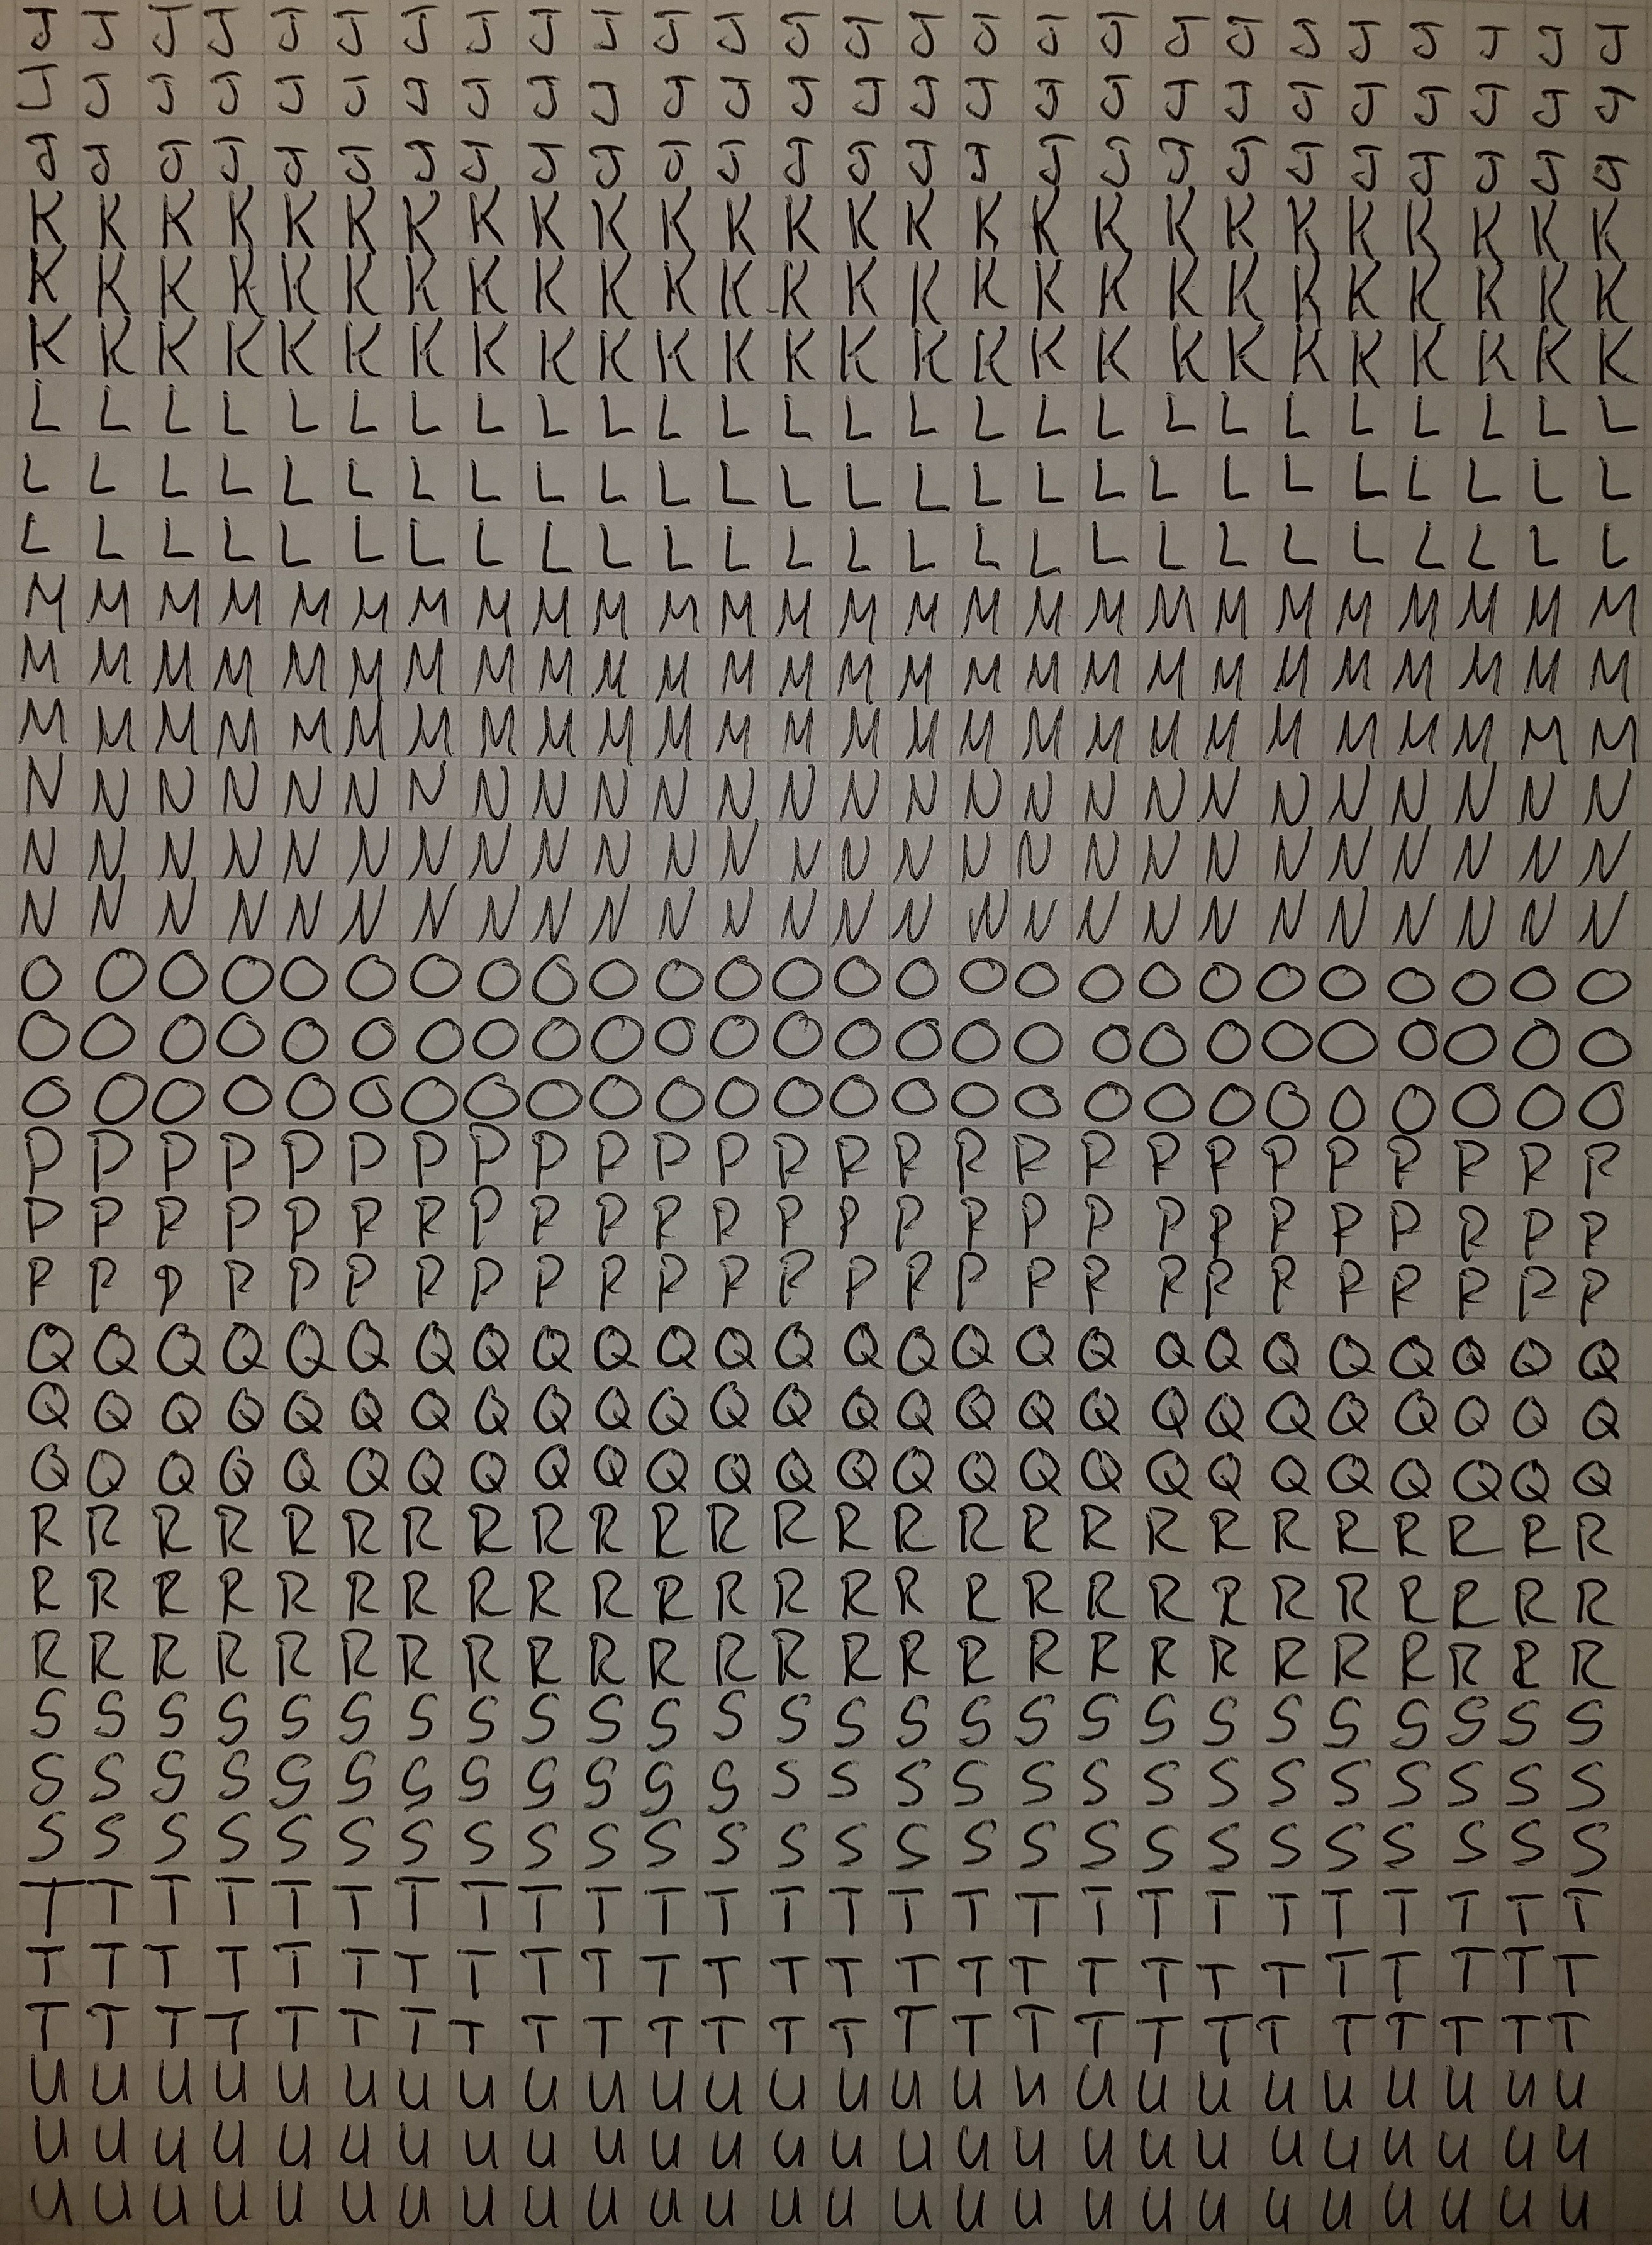 J J J J J J J J J J J J J J J J J J J J J J J J J J
J J J J J J J J J J J J J J J J J J J J J J J J J J
J J J J J J J J J J J J J J J J J J J J J J J J J J
K K K K K K K K K K K K K K K K K K K K K K K K K K
K K K K K K K K K K K K K K K K K K K K K K K K K K
K K K K K K K K K K K K K K K K K K K K K K K K K K
L L L L L L L L L L L L L L L L L L L L L L L L L L
L L L L L L L L L L L L L L L L L L L L L L L L L L
L L L L L L L L L L L L L L L L L L L L L L L L L L
M M M M M M M M M M M M M M M M M M M M M M M M M M
M M M M M M M M M M M M M M M M M M M M M M M M M M
M M M M M M M M M M M M M M M M M M M M M M M M M M
N N N N N N N N N N N N N N N N N N N N N N N N N N
N N N N N N N N N N N N N N N N N N N N N N N N N N
N N N N N N N N N N N N N N N N N N N N N N N N N N
O O O O O O O O O O O O O O O O O O O O O O O O O O
O O O O O O O O O O O O O O O O O O O O O O O O O O
O O O O O O O O O O O O O O O O O O O O O O O O O O
P P P P P P P P P P P P P P P P P P P P P P P P P P
P P P P P P P P P P P P P P P P P P P P P P P P P P
P P P P P P P P P P P P P P P P P P P P P P P P P P
Q Q Q Q Q Q Q Q Q Q Q Q Q Q Q Q Q Q Q Q Q Q Q Q Q Q
Q Q Q Q Q Q Q Q Q Q Q Q Q Q Q Q Q Q Q Q Q Q Q Q Q Q
Q Q Q Q Q Q Q Q Q Q Q Q Q Q Q Q Q Q Q Q Q Q Q Q Q Q
R R R R R R R R R R R R R R R R R R R R R R R R R R
R R R R R R R R R R R R R R R R R R R R R R R R R R
R R R R R R R R R R R R R R R R R R R R R R R R R R
S S S S S S S S S S S S S S S S S S S S S S S S S S
S S S S S S S S S S S S S S S S S S S S S S S S S S
S S S S S S S S S S S S S S S S S S S S S S S S S S
T T T T T T T T T T T T T T T T T T T T T T T T T T
T T T T T T T T T T T T T T T T T T T T T T T T T T
T T T T T T T T T T T T T T T T T T T T T T T T T T
U U U U U U U U U U U U U U U U U U U U U U U U U U
U U U U U U U U U U U U U U U U U U U U U U U U U U
U U U U U U U U U U U U U U U U U U U U U U U U U U